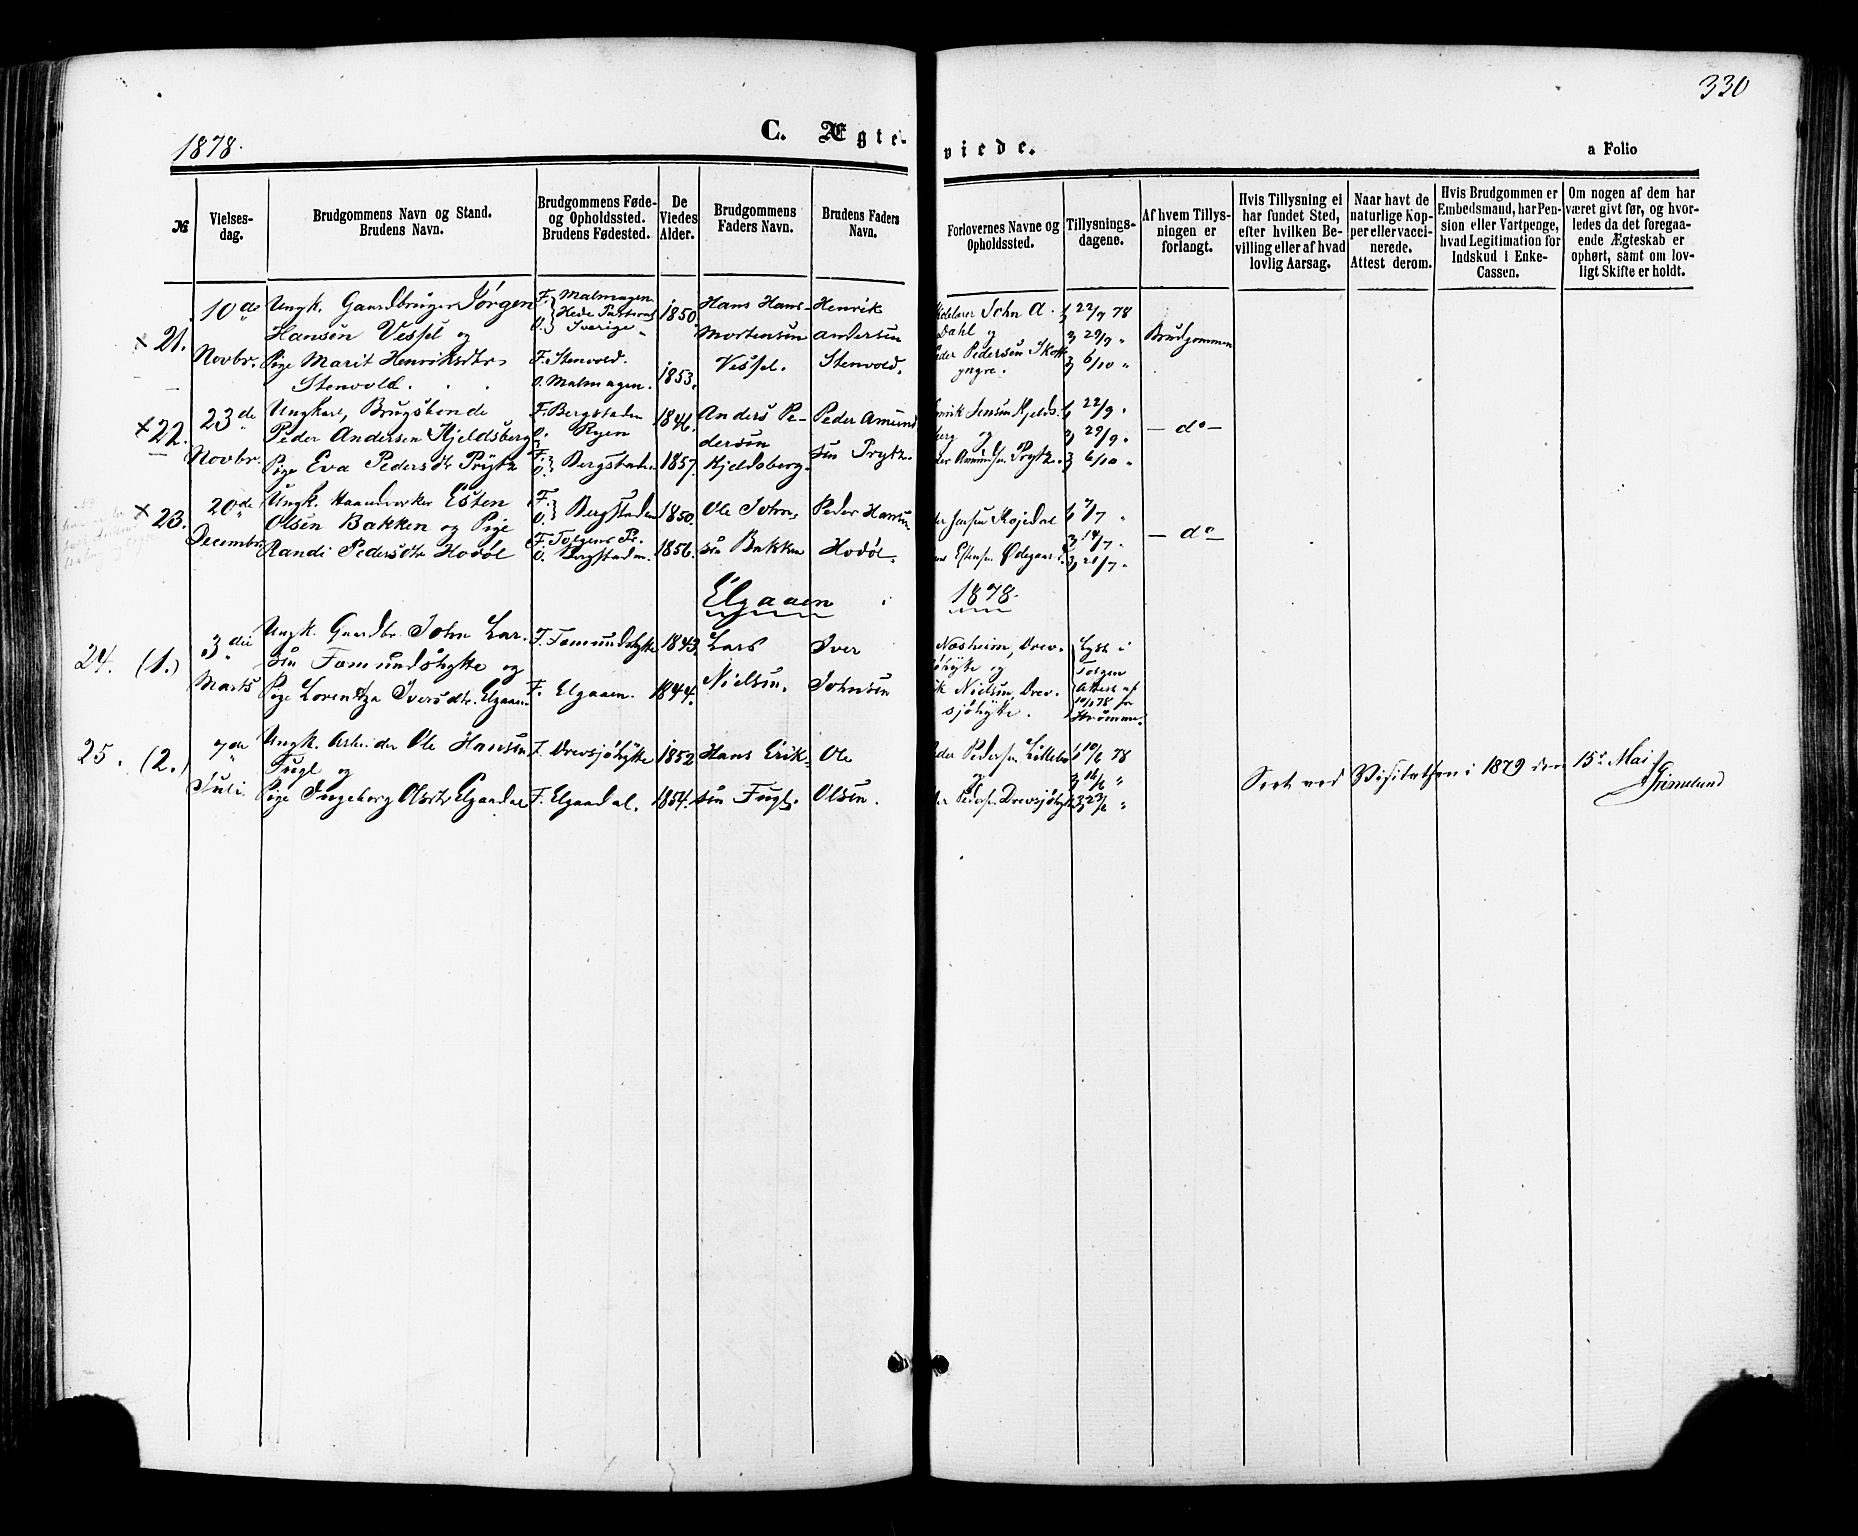 330
1878.
C. Ægte-
viede.
a Folio
№
Vielses-
dag.
Brudgommens Navn og Stand.
Brudens Navn.
Brudgommens Føde-
og Opholdssted.
Brudens Fødested.
De
Viedes
Alder.
Brudgommens
Faders Navn.
Brudens Faders
Navn.
Forlovernes Navne og
Opholdssted.
Tillysnings-
dagene.
Af hvem Tillys-
ningen er
forlangt.
Hvis Tillysning ei
har fundet Sted,
efter hvilken Be-
villing eller af hvad
lovlig Aarsag.
Naar havt de
naturlige Kop-
per eller vacci-
nerede.
Attest derom.
Hvis Brudgommen er
Embedsmand, har Pen-
sion eller Vartpenge,
hvad Legitimation for
Indskud i Enke-
Cassen.
Om nogen af dem har
været givt før, og hvor-
ledes da det foregaa-
ende Ægteskab er
ophørt, samt om lov-
ligt Skifte er holdt.
x 21.
10de
Novbr.
Ungk. Gaardbruger Jørgen
Hansen Vessel og
Pige Marit Henriksdtr
Stenvold.
F. Malmagen
Hede Pastorat
O. Sverige
F. Stenvold.
O. Malmagen.
1850
1853.
Hans Hans-
Mortensen
Vessel.
Henrik
Andersen
Stenvold.
John A.
Dahl og
Peder Pedersen Skott
yngre.
22/9 78
29/9 "
6/10 "
Brudgommen
x 22.
23de
Novbr.
Ungkarl, Brugsbonde
Peder Andersen Kjeldsberg
Pige Eva Pedersdtr Prytz
F. Bergstaden
O. Ryen
F. O. Bergstaden
1846.
1857.
Anders Pe-
dersen
Kjeldsberg.
Peder Amund
sen Prytz.
Henrik Jensen Kjelds-
berg og
Peder Amundsen Prytz.
22/9 "
29/9 "
6/10 "
— do —
x 23.
20de
Decembr
Ungk. Haandverker Esten
Olsen Bakken og Pige
Randi Pedersdtr Hodøl
F. O. Bergstaden
F. Tolgens Pr.
O. Bergstaden.
1850.
1856.
Ole John-
sen Bakken
Peder Hansen
Hodøl.
Jensen
Estensen Ødegaard.
7/7 "
14/7 "
21/7 "
— do —
Elgaaen
1878.
24. (1.)
3die
Marts
Ungk. Gaardbr. John Lar-
sen Fæmundshytte og
Pige Lorentza Iversdtr. Elgaaen
F. Fæmundshytte
F. Elgaaen.
1843.
1844.
Lars
Nielsen.
Iver
Johnsen
Næsheim, Drev-
sjøhytte og
Nielsen, Drev-
sjøhytte.
Lyst i
Tolgen
Attest af
10/1 78 fr
Strømme.
25. (2.)
7de
Juli
Ungk. Arbeider Ole Hansen
Fugl og
Pige Ingeborg Olsdtr Elgaadal
F. Drevsjøhytte
F. Elgaadal.
1852
1854.
Hans Erik-
sen Fugl.
Ole
Olsen.
Peder Pedersen Lillebo
og
Pedersen Drevsjøhytte
10/6 78
16/6 "
23/6 "
Seet ved Visitatsen i 1879 den 15de Mai
Grimelund